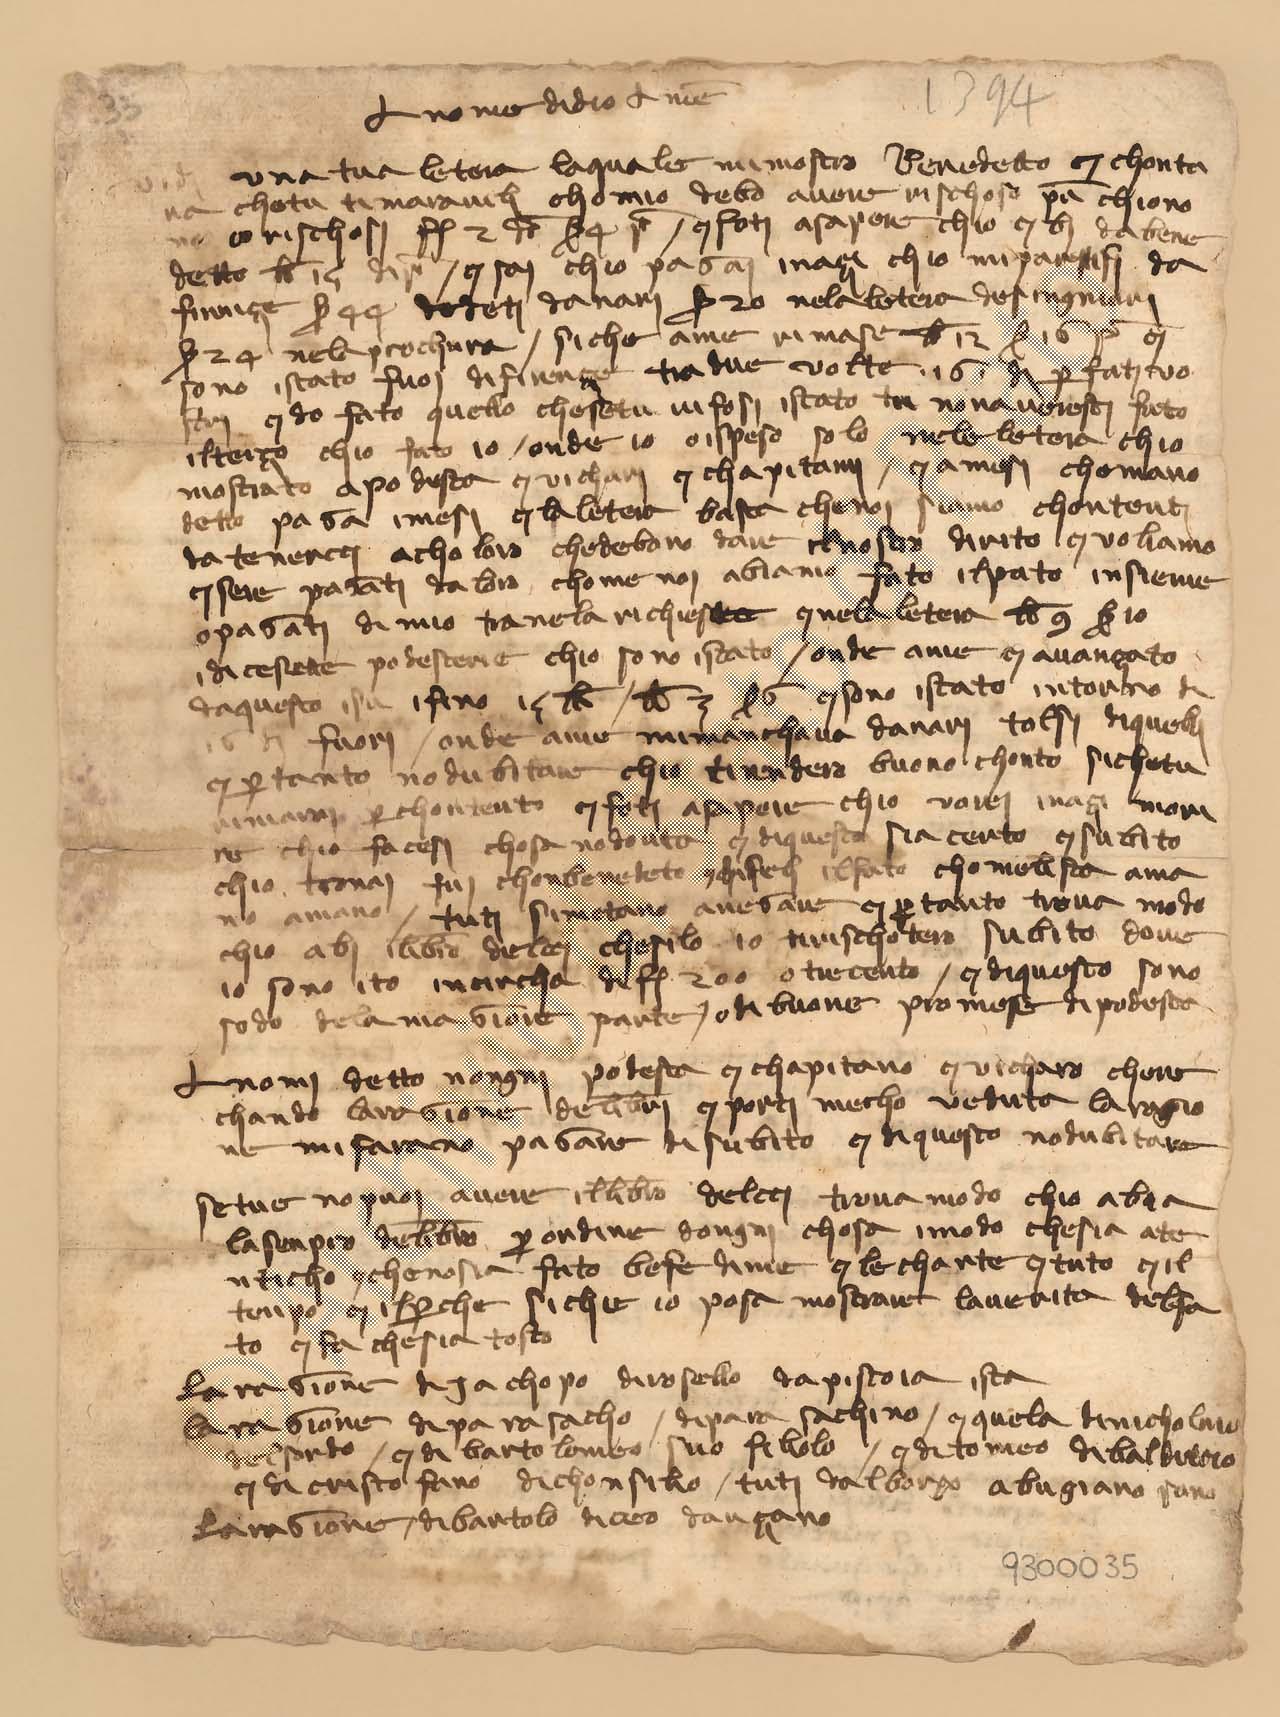 33
1394
I nome didio I me
vidi una tua letera laquale mi mostro Benedetto e chonta
va chetu ti maravili chomio debo avere rischoso pù chiono
no orischosi ff 2 β 4 e foti asapere chio e bi dabene
detto lb 15 di p / e sai chio pagai inazi chio mi partisi da
firenze β 44 dodeti danari β 20 nela letera desingniori
β 24 nele prochura / siche ame rimase lb 12 β 16 p e
sono istato fuoi difirenze tra due volte 16 di per fati vo
stri e do fato quello chesetu vi fosi istato tu nonaveresti fato
ilterzo chio fato io / onde io oispeso solo nele letera chio
mostrato apodesta e vichari e chapitani / e amesi chomano
detto paga imesi e la letera basta chenoi siamo chontenti
datenerci acholoro chedebono dare ilnostro dirito e voliamo
esere paghati daloro chome noi abiamo fato ilpato insieme
opagati dimio tranela richiesta e nela letera lb 9 β 10
idicesette podesterie chio sono istato / onde ame e avanzato
daquesto isu ifino 15 lb / lb 3 β 6 e sono istato intorno di
16 di fuori / onde ame mimanchava danari tolsi diqueli
e per tanto nodubitare chio tirendero buono chonto sichetu
rimarai per chontento e foti asapere chio vorei inazi mori
re chio facesi chosa nodovuta e diquesto sia certo e subito
chio tornai fui chonbenedeto e disili ilfato chomelista ama
no amano / tuti simetano anegare e per tanto trova modo
chio abi ilibro delci chesilo io tirischotero subito dove
io sono ito incircha di ff 200 otrecento / e diquesto sono
sodo dela magiore parte / odi buone promese dipodesta
I nomi detto nongni podesta e chapitano e vicharo chere
chando laragione delibri e porti mecho veduta laragio
ne mifarano pagare disubito e diquesto nodubitare
setue nopuoi avere ilibro delci trova modo chio abia
lasenpro delibro per ordine dongni chosa imodo chesia ate
nticho e chenosia fato befe dime e le charte e tuto e il
tenpo e ilperche siche io posa mostrare laverita delfa
to e fa chesia tosto
La ragione di jachopo dirosello dapistoia ista
La ragione dipara sacho / dipara sachino / e quela dinicholaio
delsordo / e di bartolomeo suo filiolo / e ditomeo dibalduccio
e di cristofano dichonsilio / tuti dalborgo abugiano sono
La ragione / dibartolo diceo dauzano
9300035